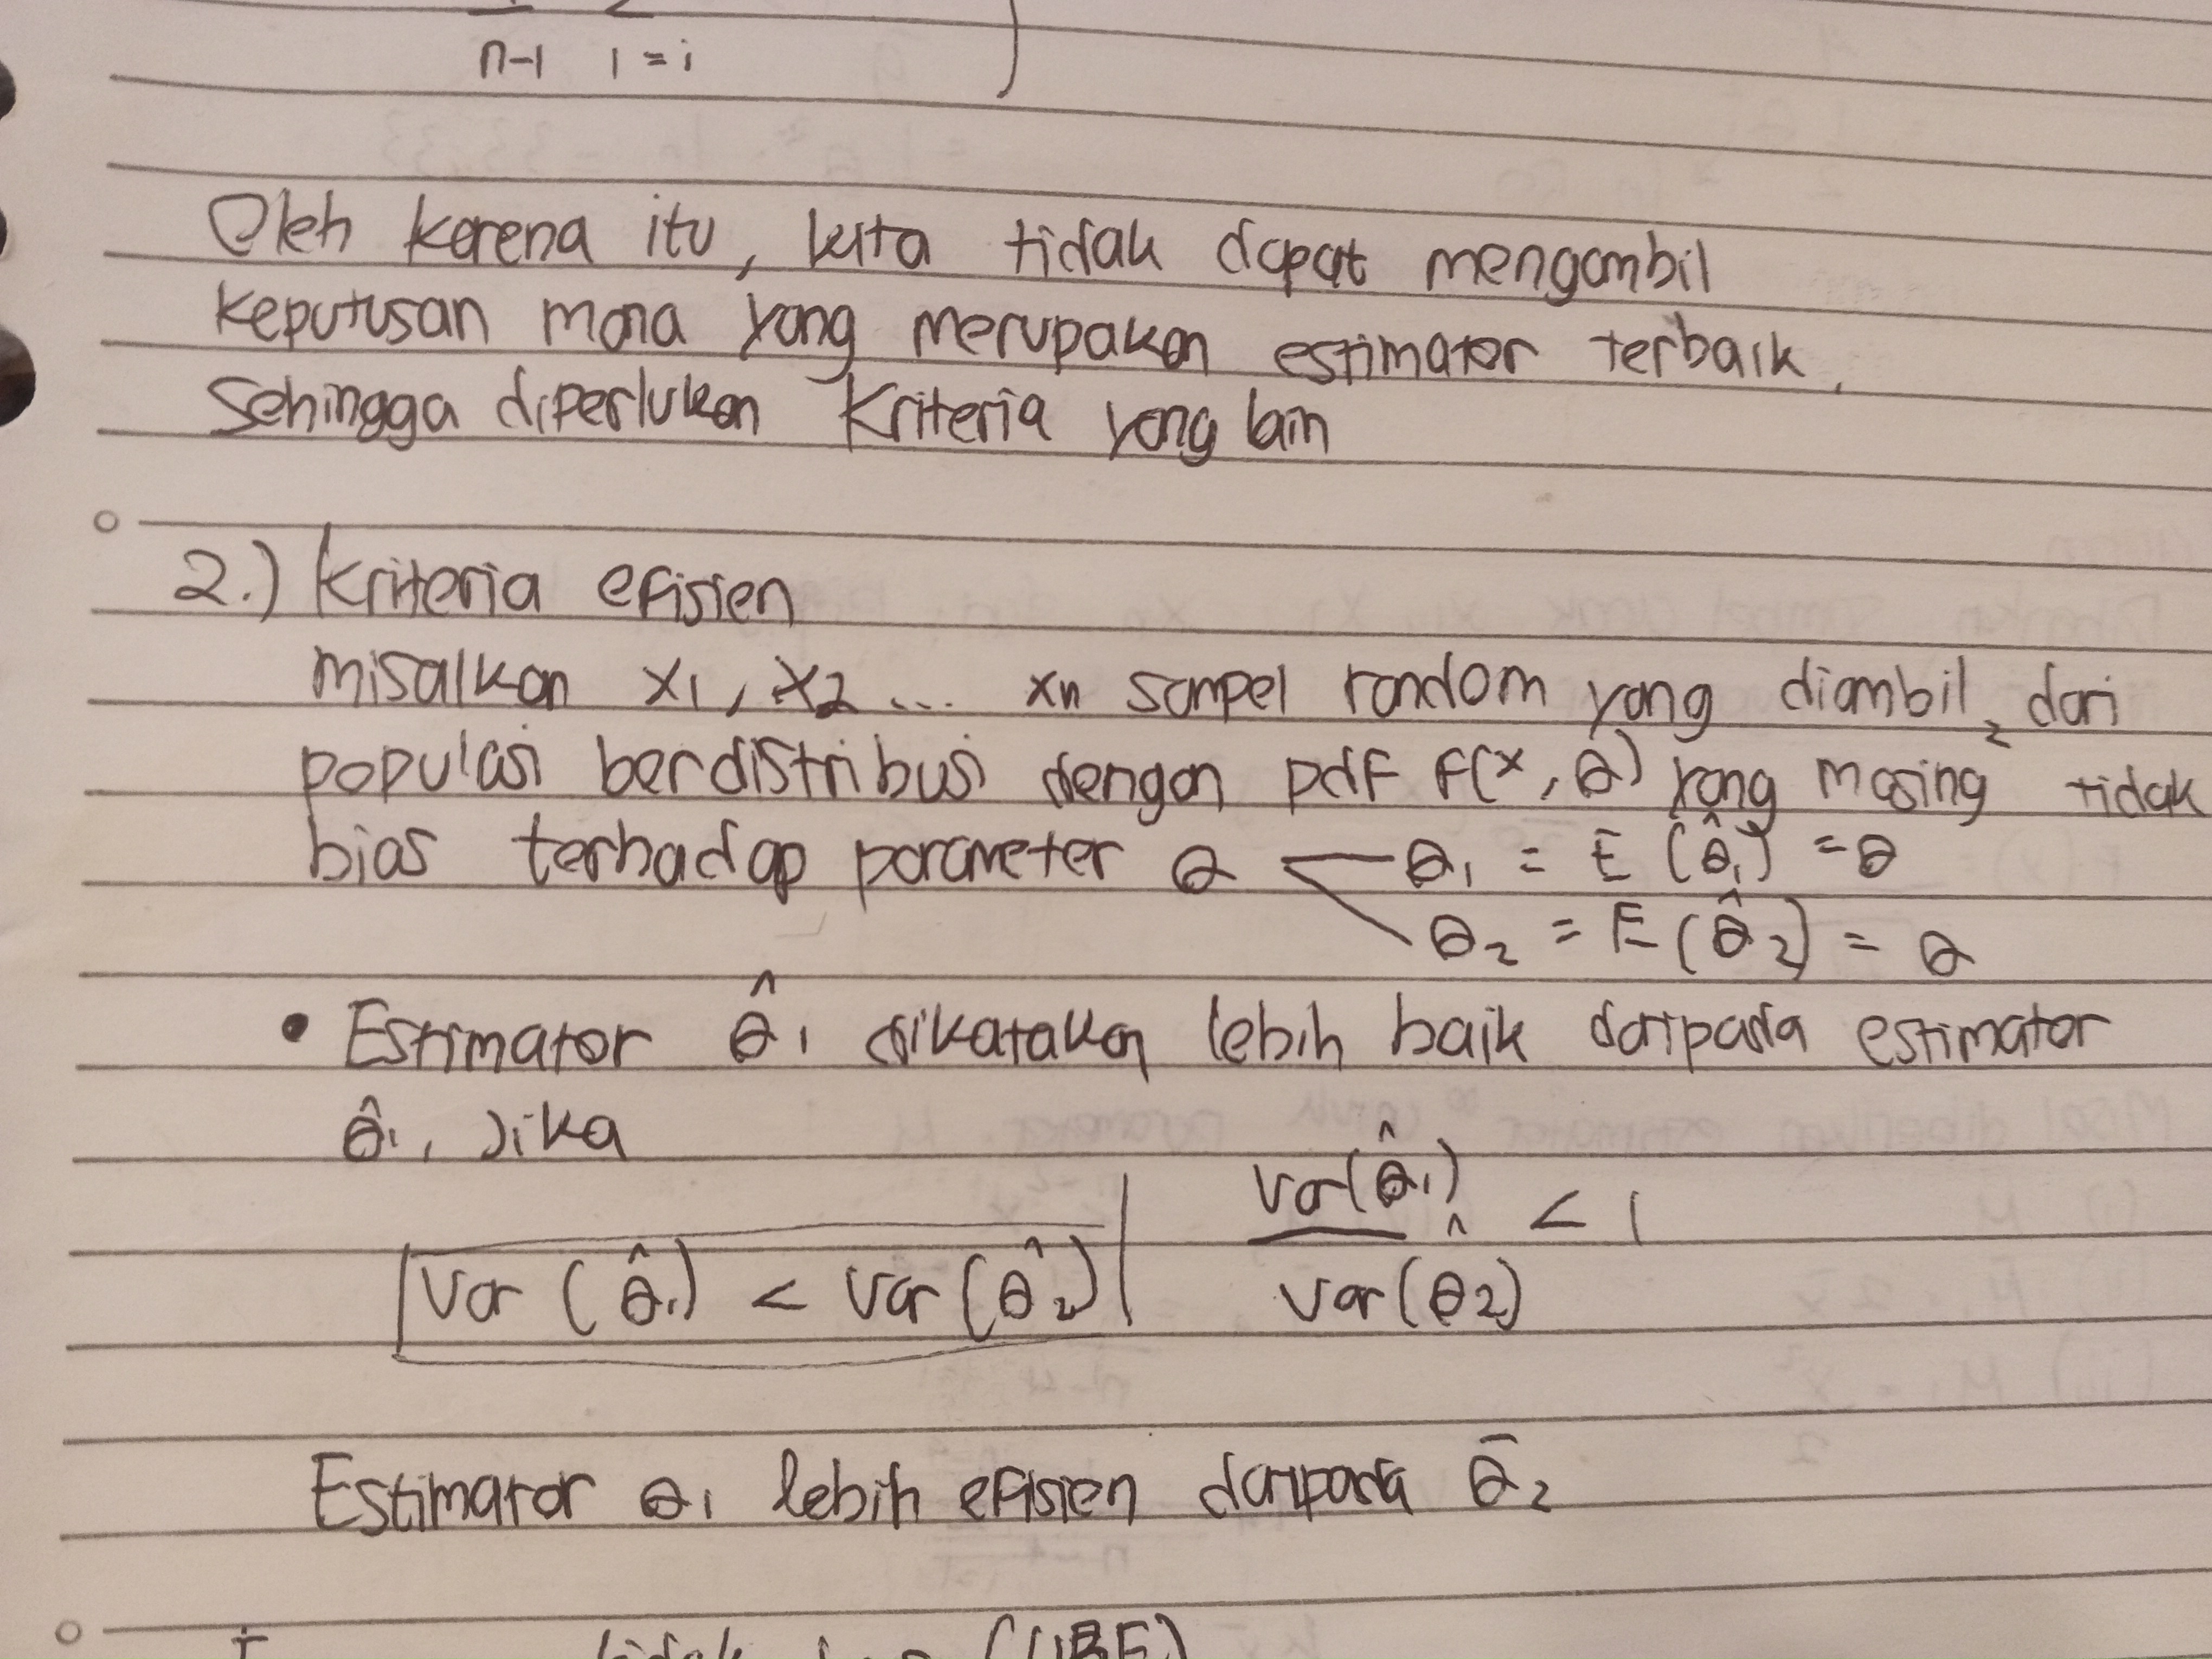 n-1 i=i )
Oleh karena itu, kita tidak dapat mengambil
keputusan mana yang merupakan estimator terbaik.
Sehingga diperlukan kriteria yang lain
2.) Kriteria efisien
misalkan x₁, x₂ ... xn sampel random yang diambil dari
populasi berdistribusi dengan pdf f(x, θ) yang masing² tidak
bias terhadap parameter θ θ₁ = E (θ̂₁) = θ
θ₂ = E (θ̂₂) = θ
• Estimator θ̂₁ dikatakan lebih baik daripada estimator
θ̂₁, Jika
Var (θ̂₁) < Var (θ̂₂) | var(θ̂₁) / var(θ̂₂) < 1
Estimator θ₁ lebih efisien daripada θ̄₂
tidak (UBE)